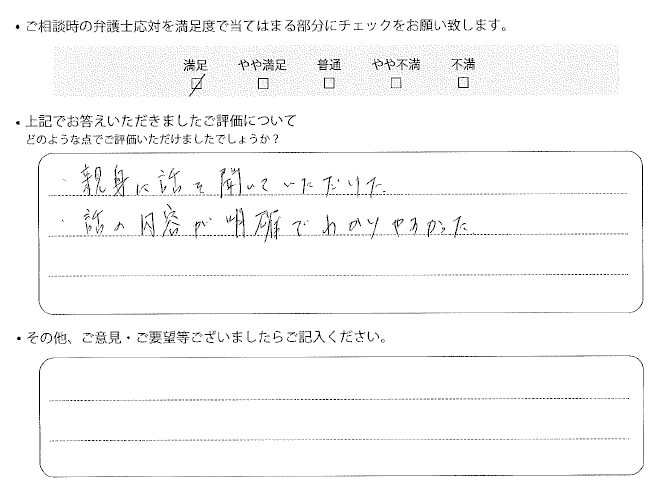 ・ご相談時の弁護士応対を満足度で当てはまる部分にチェックをお願い致します。
満足 やや満足 普通 やや不満 不満
・上記でお答えいただきましたご評価について
どのような点でご評価いただけましたでしょうか?
・親身に話を聞いていただけた。
・話の内容が明確でわかりやすかった
・その他、ご意見・ご要望等ございましたらご記入ください。